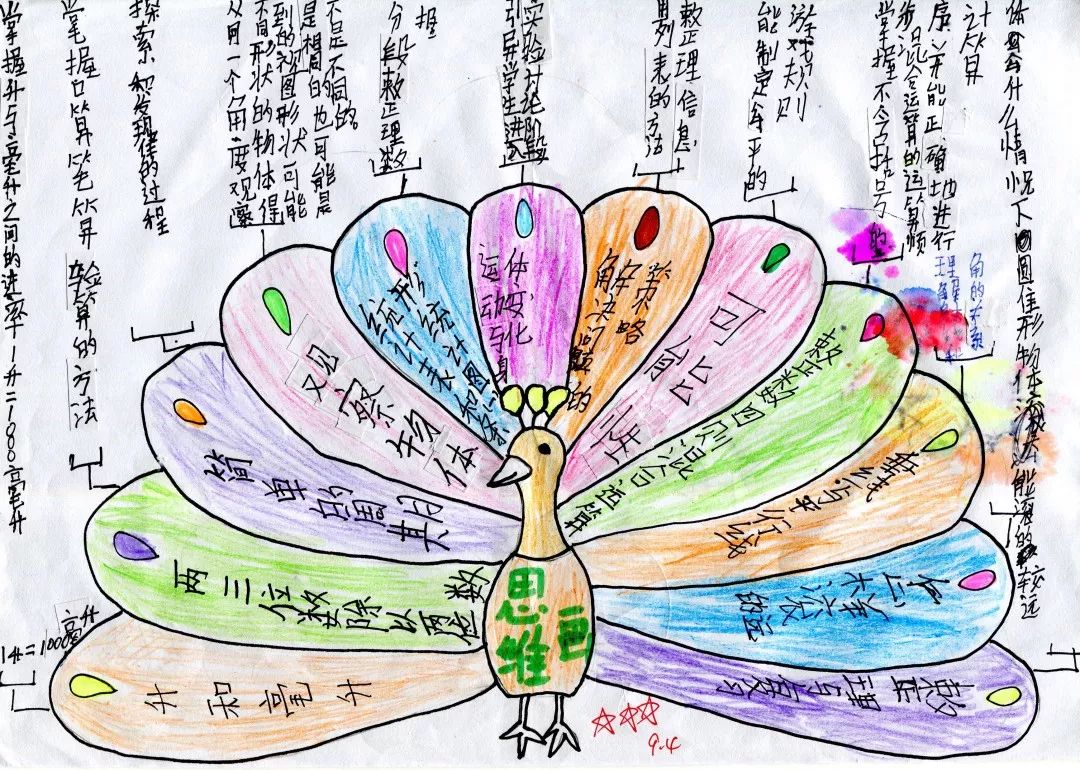 思
维
画
升和毫升
1升=1000毫升
掌握升与毫升之间的进率1升=1000毫升
两三位数除以两位数
掌握口算笔算验算的方法
简单的周期
探索和发现规律的过程
观察物体
从同一个角度观察
不同形状的物体得
到的视图形状可能
是相同的也可能是
不是不同的
统计表和条形统计图
分段整理数
握
运动与身体变化
实验讨论阶段
引导学生进入
解决问题的策略
整理信息
列表的方法
可能性
游戏规则
能制定公平的
整数四则混合运算
掌握不含括号
的
步混合运算的运算顺
序并能正确地进行
计算
垂线与平行线
理解
角的关系
整理与复习
体会什么情况下圆柱形物体
能滚的较远
9.4